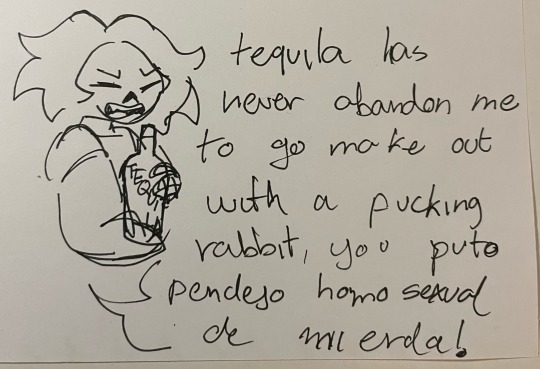 tequila has
never abandon me
to go make out
with a pucking
rabbit, you puto
pendejo homosexual
de mierda!
TEQUILA